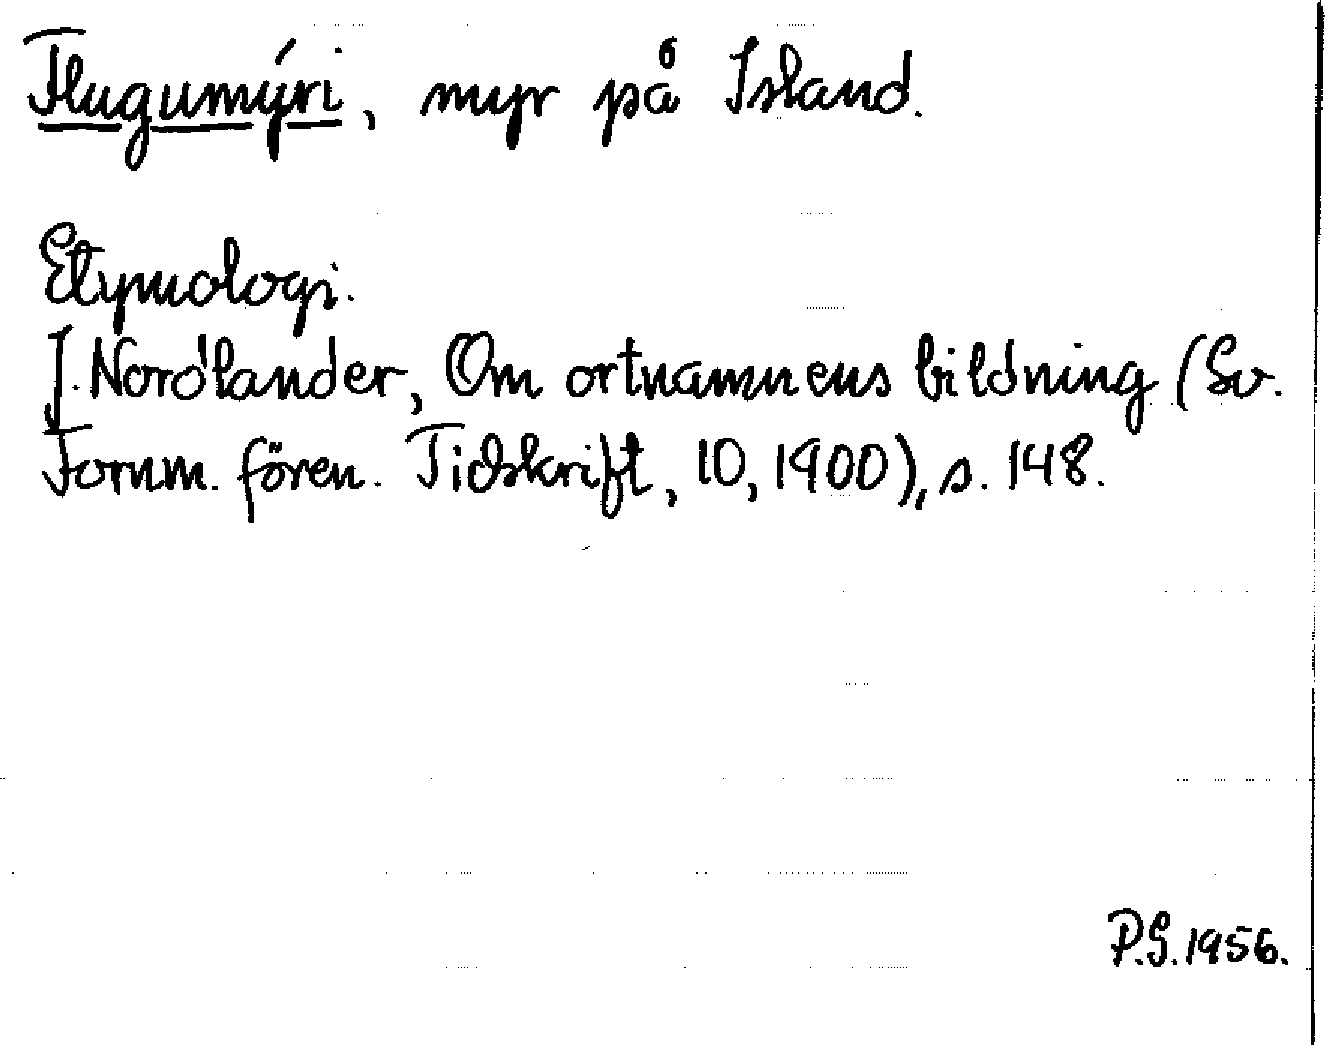 Flugumýri, myr på Island.
Etymologi.
J. Nordlander, Om ortnamnens bildning (Sv.
Fornm. fören. Tidskrift, 10, 1900), s. 148.
P.G. 1956.